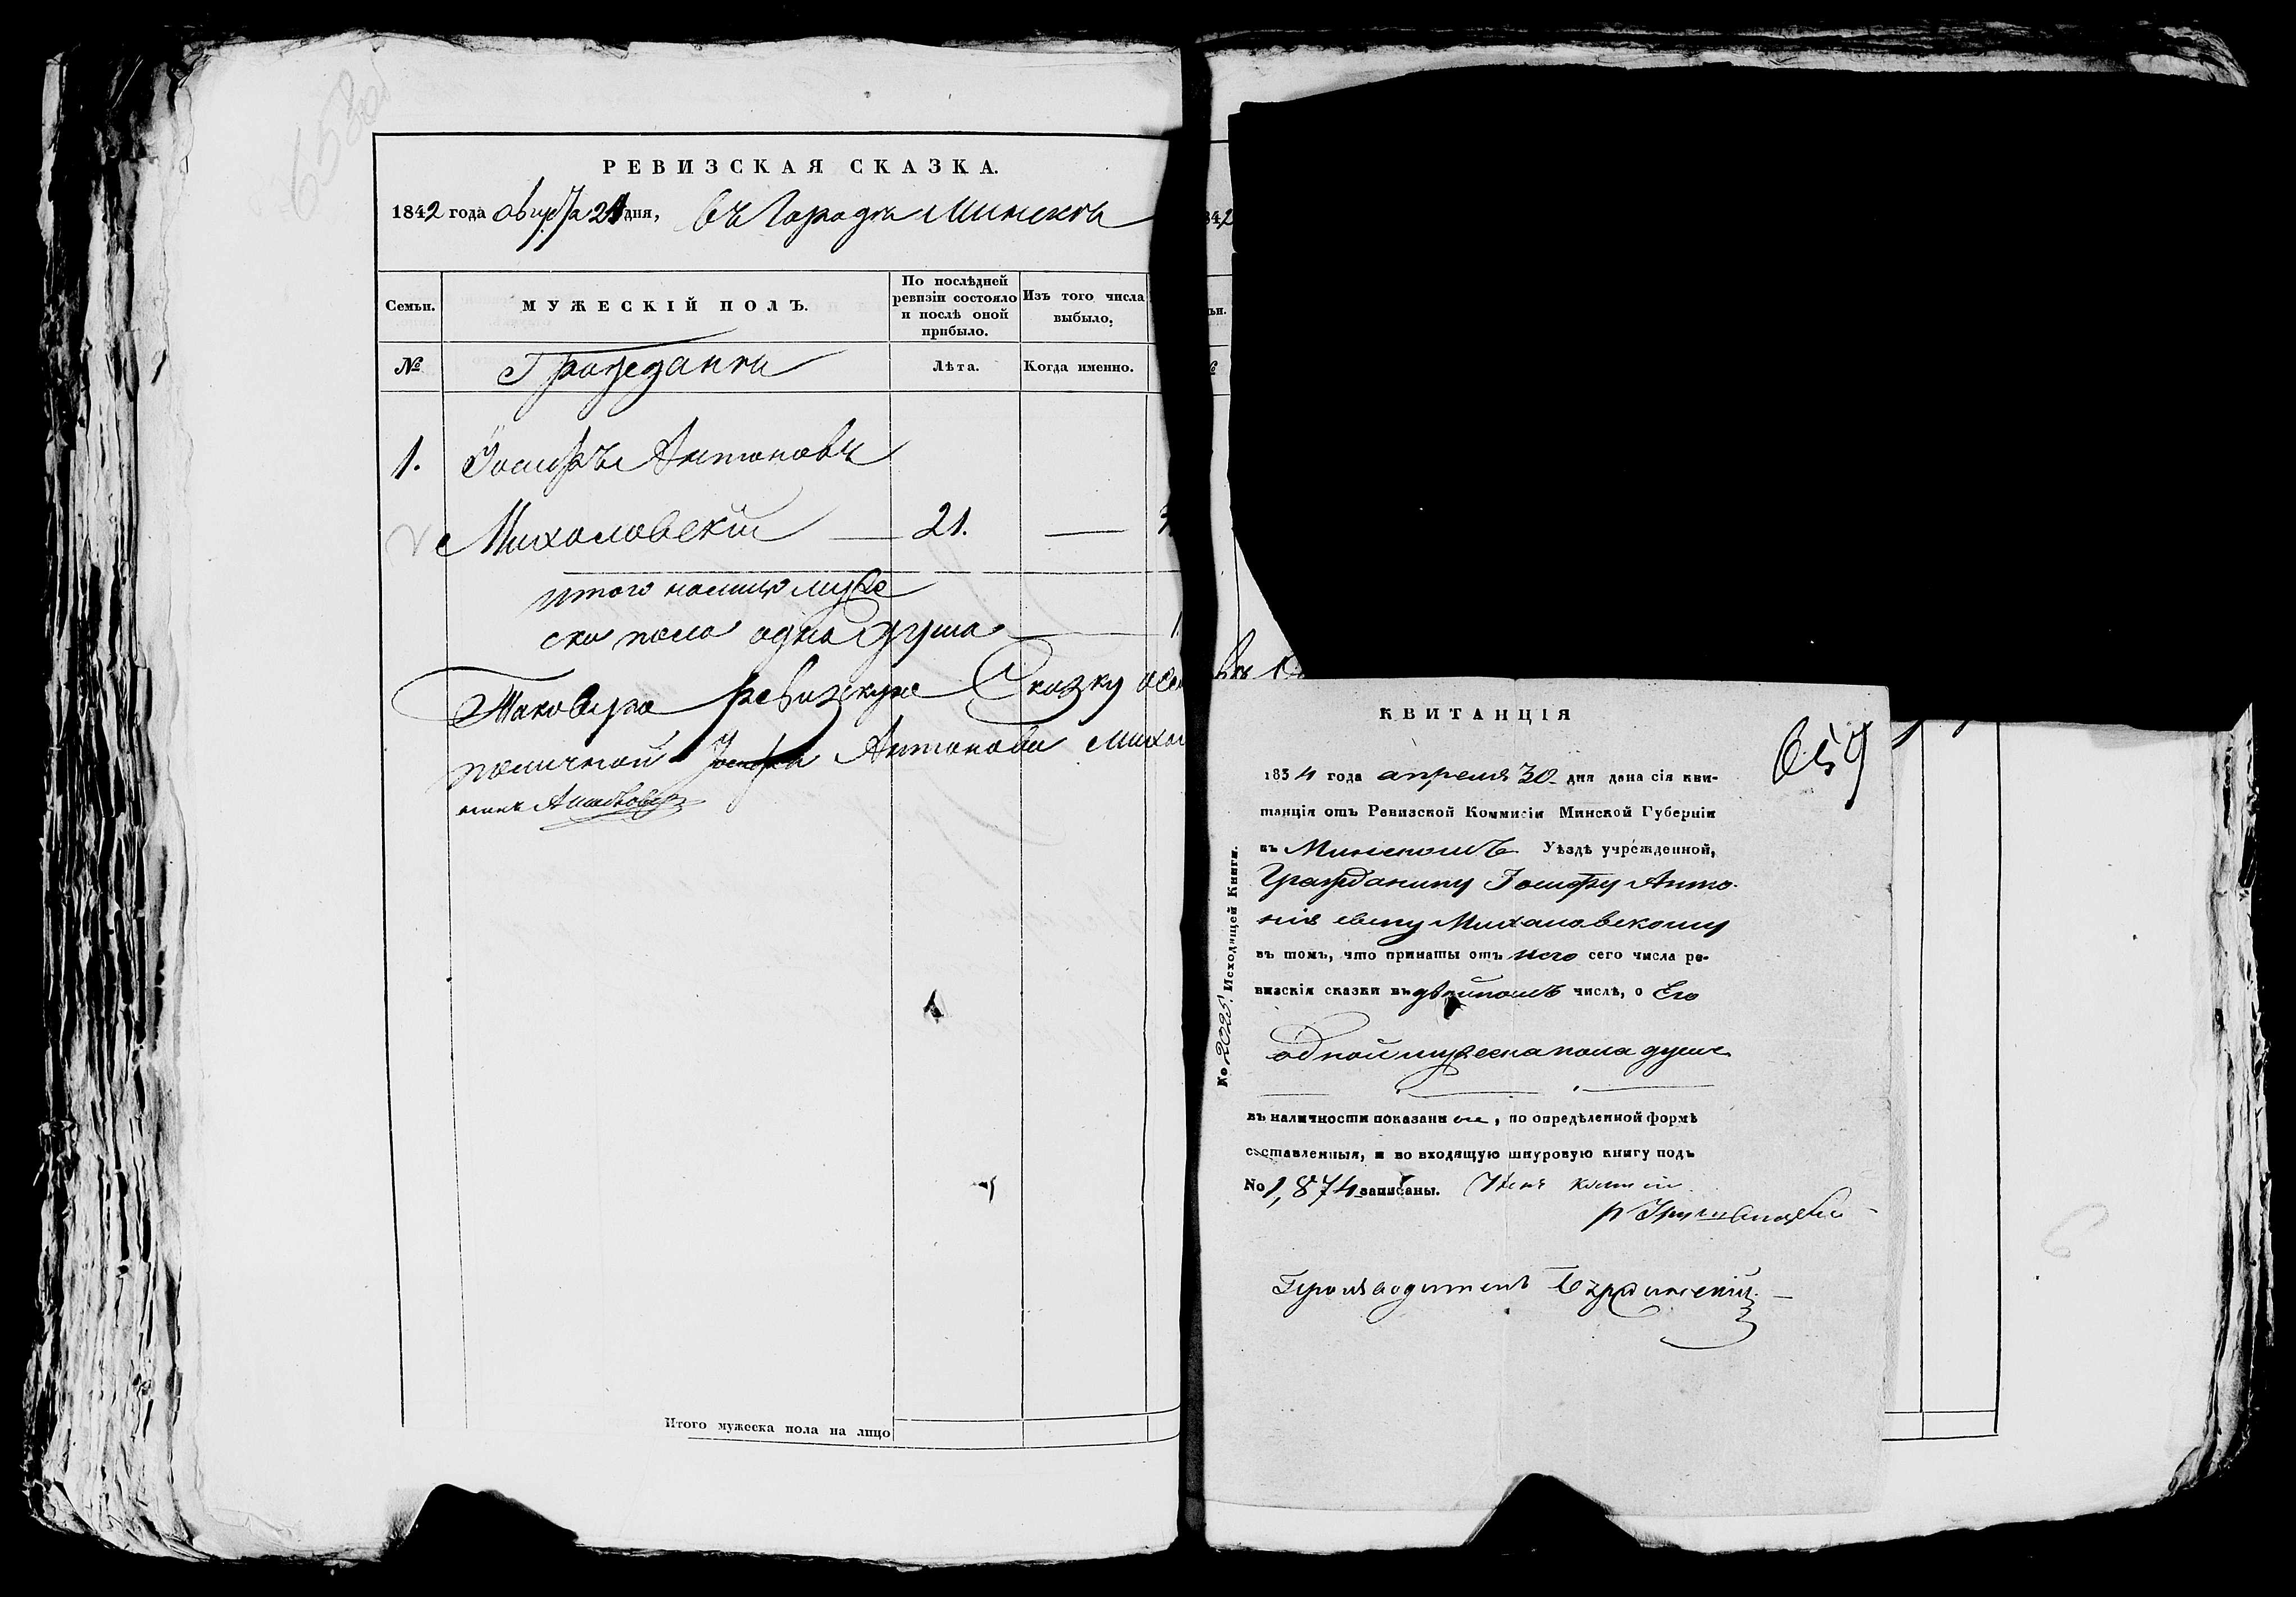 658об
РЕВИЗСКАЯ СКАЗКА.
1842 года августа 21 дня, въ Городѣ Минскѣ
Семьи.
МУЖЕСКІЙ ПОЛЪ.
По послѣдней ревизіи состояло и послѣ оной прибыло.
Изъ того числа выбыло.
№
Граждане
Лѣта.
Когда именно.
1. Іосифъ Антоновъ
Михаловскій — 21. —
итого налицо муже
ска пола одна душа — 1.
Таковую ревизскую Сказку
Антонова
Итого мужеска пола на лицо
КВИТАНЦІЯ
659
1834 года апреля 30 дня дана сія кви-
танція отъ Ревизской Коммисіи Минской Губерніи
въ Минскомъ Уѣздѣ учрежденной,
Гражданину Іосифу Анто-
нія сыну Михаловскому
въ томъ, что приняты отъ него сего числа ре-
визскія сказки въ двойномъ числѣ, о Его
одной мужеска пола душе
въ наличности показанные, по опредѣленной формѣ
составленныя, и во входящую шнуровую книгу подъ
No 1,874 записаны. Член
Производитель
No 2025. Исходящей Книги.